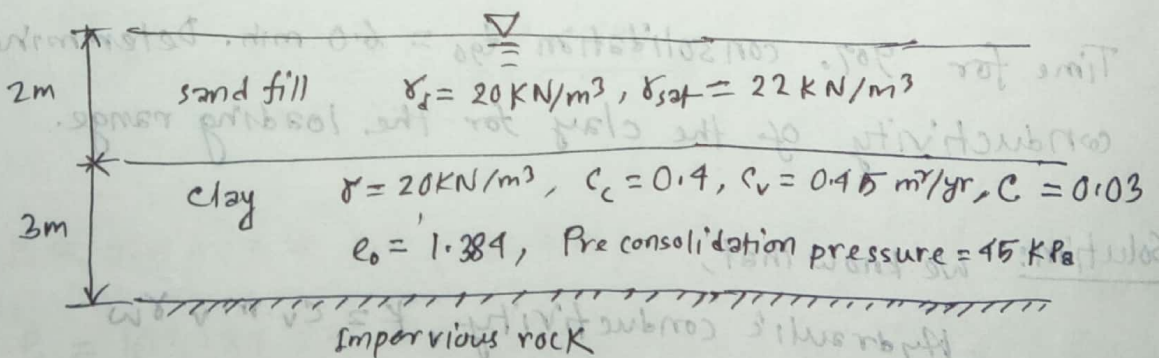 2m sand fill γd = 20 KN/m³, γsat = 22 KN/m³
3m clay γ = 20KN/m³, Cc = 0.4, Cv = 0.45 m²/yr, C = 0.03
e₀ = 1.384, Pre consolidation pressure = 45 KPa
Impervious rock